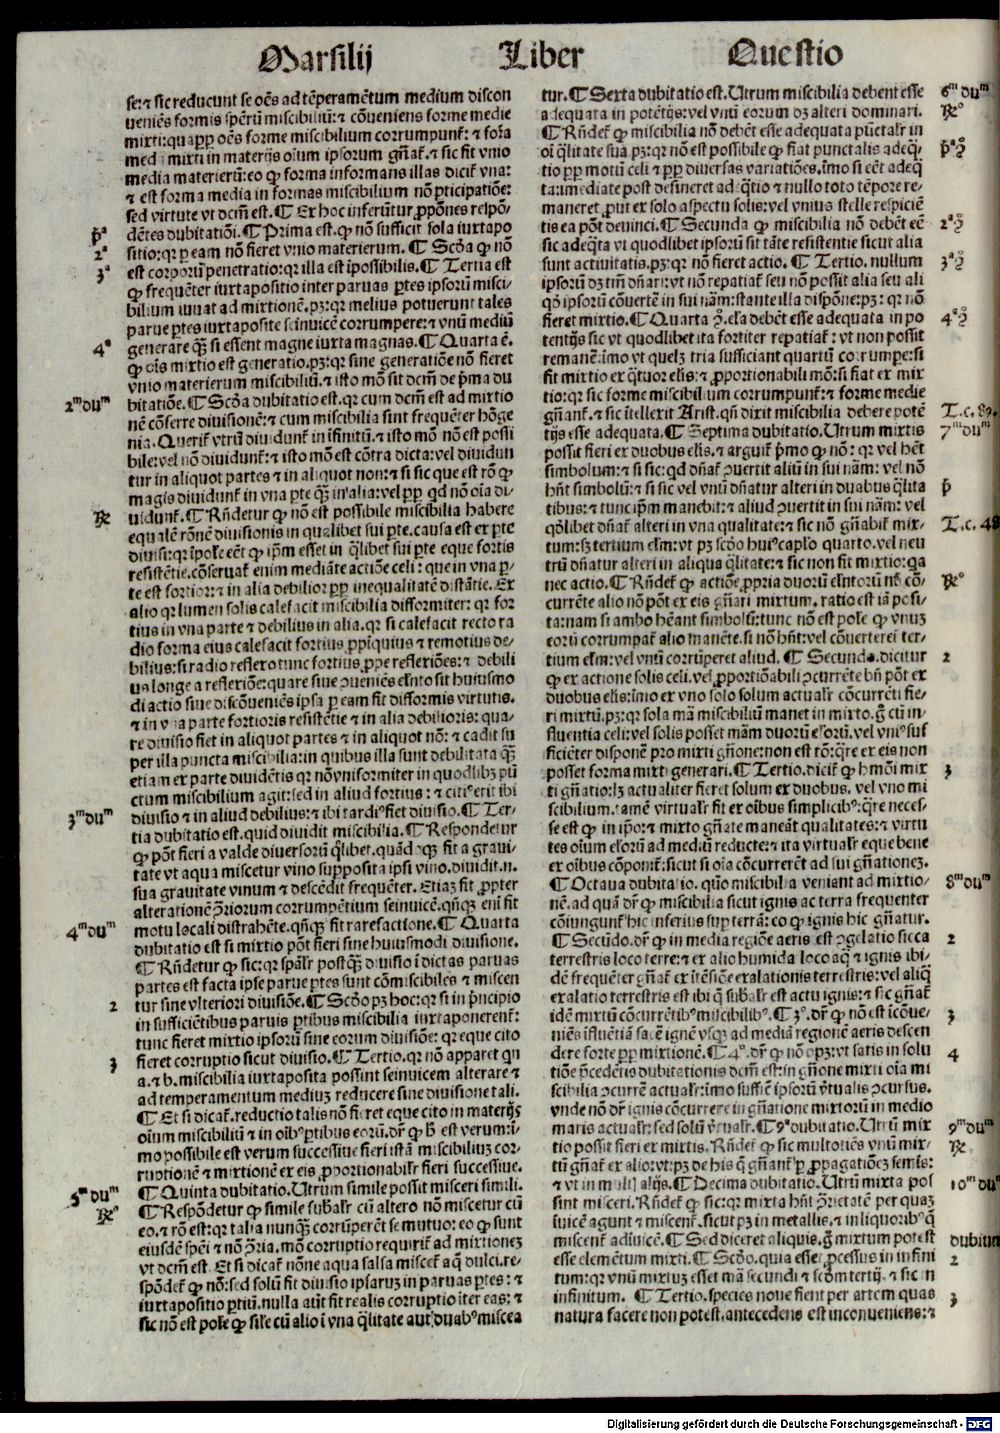 Marsilij Liber Questio
se: ⁊ sic reducunt se oẽs ad tẽperamẽtum medium discon
ueniẽs formis sperũ miscibiliũ: ⁊ cõueniens forme medie
mixti: qua ꝓp oẽs forme miscibilium corrumpunt̃: ⁊ forã
med mixti in materijs oĩum ipsorum gñat̃. ⁊ sic fit vnio
media materierũ: eo ꝙ forma informans illas dicit̃ vna:
⁊ est forma media in formas miscibilium nõ ꝑticipatiõe:
sed virtute vt dcm̃ est. ¶ Ex hoc inferũtur ꝓpõnes respõ/
dẽtes dubitatiõi. ¶ Prima est. ꝙ nõ sufficit sola iuxtapo
sitio: qꝛ ꝑ eam nõ fieret vnio materierum. ¶ Scda ꝙ nõ
est corporũ penetratio: qꝛ illa est ĩpossibilis. ¶ Tertia est
ꝙ frequẽter iuxtapositio inter paruas ꝑtes ipsorũ misci/
bilium iuuat ad mixtionẽ. pꝫ: qꝛ melius potuerunt tales
parue ꝑtes iuxtaposite seinuicẽ corrumpere: ⁊ vnũ mediũ
generare qꝫ si essent magne iuxta magnas. ¶ Quarta ẽ.
ꝙ oĩs mixtio est generatio. pꝫ: qꝛ sine generatiõe nõ fieret
vnio materierum miscibiliũ. ⁊ isto mõ sit dcm̃ de p̃ma du
bitatiõe. ¶ Scda dubitatio est. qꝛ cum dcm̃ est ad mixtio
nẽ cõferre diuisionẽ: ⁊ cum miscibilia sint frequẽter hõge
nia. Querit̃ vtrũ diuidunt̃ in ĩfinitũ. ⁊ isto mõ nõ est possi
bile: vel nõ diuidunt̃: ⁊ isto mõ est cõtra dicta: vel diuidun
tur in aliquot partes ⁊ in aliquot non: ⁊ si sic que est rõ ꝙ
magis diuidunt̃ in vna ꝑte qꝫ in alia: vel ꝓp qd nõ oĩa di/
uidunt̃. ¶ Rñdetur ꝙ nõ est possibile miscibilia habere
equalẽ rõnẽ diuisionis in qualibet sui ꝑte. causa est ex ꝑte
diuisi: qꝛ ĩpole eẽt ꝙ ip̃m esset in q̃libet sui ꝑte eque fortis
resistẽtie. cõseruat̃ enim mediãte actiõe celi: que in vna ꝑ/
te est fortior: ⁊ in alia debilior ꝓp inequalitatẽ distãtie. Ex
alio qꝛ lumen solis calefacit miscibilia difformiter: qꝛ for
tius in vna parte ⁊ debilius in alia. qꝛ si calefacit recto ra
dio forma eius calefacit fortius ꝓpĩquius ⁊ remotius de/
bilius: si radio reflexo tunc fortius ꝓpe reflexiões: ⁊ debili
us longe a reflexiõe: quare siue ꝯueniẽs elñto sit huiusmo
di actio siue discõueniẽs ipsa ꝑ eam fit difformis virtutis.
⁊ in vna parte fortioris resistẽtie ⁊ in alia debilioris: qua/
re diuisio fiet in aliquot partes ⁊ in aliquot nõ: ⁊ cadit su
per illa puncta miscibilia: in quibus illa sunt debilitata qꝫ
etiam ex parte diuidẽtis qꝛ nõ vniformiter in quodlibꝫ pũ
ctum miscibilium agit: sed in aliud fortius: ⁊ citiꝰ erit ibi
diuisio ⁊ in aliud debilius: ⁊ ibi tardiꝰ fiet diuisio. ¶ Ter/
tia dubitatio est. quid diuidit miscibilia. ¶ Respondetur
ꝙ põt fieri a valde diuersorũ q̃libet. quãdoqꝫ fit a graui/
tate vt aqua miscetur vino supposita ipsi vino. diuidit. n.
sua grauitate vinum ⁊ descẽdit frequẽter. Etiaꝫ fit ꝓpter
alterationẽ ꝯ̃riorum corrumpẽtium seinuicẽ. qñqꝫ eni fit
motu locali distrahẽte. qñqꝫ fit rarefactione. ¶ Quarta
dubitatio est si mixtio põt fieri sine huiusmodi diuisione.
¶ Rñdetur ꝙ sic: qꝛ sp̃alr postqꝫ diuisio ĩ dictas paruas
partes est facta ipse parue ꝑtes sunt cõmiscibiles ⁊ miscen
tur sine vlteriori diuisiõe. ¶ Scdo pꝫ hoc: qꝛ si in p̃ncipio
in sufficiẽtibus paruis ꝑtibus miscibilia iuxtaponerent̃:
tunc fieret mixtio ipsorũ sine eorum diuisiõe: qꝛ eque cito
fieret corruptio sicut diuisio. ¶ Tertio. qꝛ nõ apparet qn
a. ⁊ b. miscibilia iuxtaposita possint seinuicem alterare ⁊
ad temperamentum mediuꝫ reducere sine diuisione tali.
¶ Et si dicat̃. reductio talis nõ fieret eque cito in materijs
oĩum miscibiliũ ⁊ in oĩbꝰ ꝑtibus eorũ. dr̃ ꝙ h̃ est verum: ĩ/
mo possibile est verum successiue fieri istã miscibiliuꝫ cor/
ruptionẽ ⁊ mixtionẽ ex eis ꝓportionabilr fieri successiue.
¶ Quinta dubitatio. Utrum simile possit misceri simili.
¶ Respõdetur ꝙ simile subalr cũ altero nõ miscetur cũ
eo. ⁊ rõ est: qꝛ talia nunqꝫ corrũperẽt se mutuo: eo ꝙ sunt
eiusdẽ spẽi ⁊ nõ ꝯ̃ria. mõ corruptio requirit̃ ad mixtioneꝫ
vt dcm̃ est. Et si dicat̃ nõne aqua salsa miscet̃ aq̃ dulci. re/
spõdet̃ ꝙ nõ: sed solũ fit diuisio ipsaruꝫ in paruas ꝑtes: ⁊
iuxtapositio ꝑtiũ. nulla aũt fit realis corruptio ĩter eas: ⁊
sic nõ est pole ꝙ sile cũ alio ĩ vna q̃litate aut duabꝰ miscea
tur. ¶ Sexta dubitatio est. Utrum miscibilia debent esse
adequata in potẽtijs: vel vnũ eorum dꝫ alteri dominari.
¶ Rñdet̃ ꝙ miscibilia nõ debẽt esse adequata pũctalr in
oĩ q̃litate sua pꝫ: qꝛ nõ est possibile ꝙ fiat punctalis adeq̃/
tio ꝓp motũ celi ⁊ ꝓp diuersas variatiões. ĩmo si eẽt adeq̃
ta: ĩmediate post desineret adeq̃tio ⁊ nullo toto tẽpore re/
maneret ꝓut ex solo aspectu solis: vel vnius stelle respiciẽ
tis ea põt deuinci. ¶ Secunda ꝙ miscibilia nõ debẽt eẽ
sic adeq̃ta vt quodlibet ipsorũ sit tãte resistentie sicut alia
sunt actiuitatis. pꝫ: qꝛ nõ fieret actio. ¶ Tertio. nullum
ipsorũ dꝫ tm̃ dñari: vt nõ repatiat̃ seu nõ possit alia seu ali
qd̃ ipsorũ cõuertẽ in sui nãm: stante illa dispõne: pꝫ: qꝛ nõ
fieret mixtio. ¶ Quarta ꝯ̃. elta debẽt esse adequata in po
tentijs sic vt quodlibet ita fortiter repatiat̃: vt non possit
remanẽ: ĩmo vt quelꝫ tria sufficiant quartũ corrumpe: si
fit mixtio ex q̃tuor elis: ⁊ ꝓportionabili mõ: si fiat ex mix
tio: qꝛ sic forme miscibilium corrumpunt̃: ⁊ forme medie
gñant̃. ⁊ sic ĩtellexit Arist. qñ dixit miscibilia debere potẽ
tijs esse adequata. ¶ Septima dubitatio. Utrum mixtis
possit fieri ex duobus elis. ⁊ arguit̃ p̃mo ꝙ nõ: qꝛ vel hẽt
simbolum: ⁊ si sic: qd dñat̃ ꝯuertit aliũ in sui nãm: vel nõ
hñt simbolũ: ⁊ si sic vel vnũ dñatur alteri in duabus q̃lita
tibus: ⁊ tunc ip̃m manebit: ⁊ aliud ꝯuertit in sui nãm: vel
qd̃libet dñat̃ alteri in vna qualitate: ⁊ sic nõ gñabit̃ mix/
tum: sꝫ tertium elm̃: vt pꝫ scdo huiꝰ caplo quarto. vel neu
trũ dñatur alteri in aliqua q̃litate: ⁊ sic non fit mixtio: qa
nec actio. ¶ Rñdet̃ ꝙ actiõe ꝓpria duorũ elñtorũ nõ cõ/
currẽte alio nõ põt ex eis gñari mixtum. ratio est iã posi/
ta: nam si ambo hẽant simbolũ: tunc nõ est pole ꝙ vnuꝫ
eorũ corrumpat̃ alio manẽte. si nõ hñt: vel cõuerterẽt ter/
tium elm̃: vel vnũ corrũperet aliud. ¶ Secundo. dicitur
ꝙ ex actione solis celi. vel ꝓportiõabili ꝯcurrẽte bñ põt ex
duobus elis: ĩmo ex vno solo solum actualr cõcurrẽti fie/
ri mixtũ. pꝫ: qꝛ sola mã miscibiliũ manet in mixto. g̊ cũ in/
fluentia celi: vel solis posset mãm duorũ elorũ. vel vniꝰ suf
ficiẽter disponẽ pro mixti gñone: non est rõ: q̃re ex eis non
posset forma mixti generari. ¶ Tertio. dicit̃ ꝙ hmõi mix
ti gñatio: lꝫ actualiter fieret solum ex duobus. vel vno mi
scibilium. tamẽ virtualr fit ex oĩbus simplicibꝰ: q̃re neces/
se est ꝙ in ip̃o: ⁊ mixto gñate maneãt qualitates: ⁊ virtu
tes oĩum elorũ ad mediũ reducte: ⁊ ita virtualr eque bene
ex oĩbus cõponit̃: sicut si oĩa cõcurrerẽt ad sui gñationeꝫ.
¶ Octaua dubitatio. quõ miscibilia veniant ad mixtio/
nẽ. ad quã dr̃ ꝙ miscibilia sicut ignis ac terra frequenter
cõiungunt̃ hic inferius sup terrã: eo ꝙ ignis hic gñatur.
¶ Secũdo. dr̃ ꝙ in media regiõe aeris est ꝯgelatio sicca
terrestris loco terre: ⁊ ex alio humida loco aq̃ ⁊ ignis ibi/
dẽ frequẽter gñat̃ ex ĩtẽsiõe exalationis terrestris: vel aliq̃
exalatio terrestris est ibi q̃ subalr est actu ignis: ⁊ sic gñat̃
idẽ mixtũ cõcurrẽtibꝰ miscibilibꝰ. ¶ 3º. dr̃ ꝙ nõ est ĩcõue/
niẽs ĩfluẽtia facẽ ignẽ vsqꝫ ad mediã regionẽ aeris descen
dere forte ꝓp mixtionẽ. ¶ 4º. dr̃ ꝙ nõ opꝫ: vt satis in solu
tiõe p̃cedẽtis dubitationis dcm̃ est: in gñone mixti oĩa mi
scibilia ꝯcurrẽ actualr: ĩmo sufficẽ ipsorũ ṽtualis ꝯcursus.
vnde nõ dr̃ ignis cõcurrere in gñatione mixtorũ in medio
maris actualr: sed solũ ṽtualr. ¶ 9ª dubitatio. Utrũ mix
tio possit fieri ex mixtis. Rñdet̃ ꝙ sic multotiẽs vnũ mix/
tũ gñat̃ ex alio: vt pꝫ de his q̃ gñant̃ ꝑ ꝓpagatiõeꝫ semis:
⁊ vt in multis alijs. ¶ Decima dubitatio. Utrũ mixta pos
sint misceri. Rñdet̃ ꝙ sic: qꝛ mixta hñt ꝯ̃rietatẽ per quaꝫ
ĩuicẽ agunt ⁊ miscent̃. sicut pꝫ in metallis. ⁊ in liquoribꝰ q̃
miscent̃ adĩuicẽ. ¶ Sed diceret aliquis. g̊ mixtum potest
esse elemẽtum mixti. ¶ Scdo. quia esset ꝓcessus in infini
tum: qꝛ vnũ mixtuꝫ esset mã secundi ⁊ scdm tertij. ⁊ sic in
infinitum. ¶ Tertio. species noue fient per artem quas
natura facere non potest. antecedens est inconueniens: ⁊
p̃ª
2ª
3ª
4ª
2ᵐ duᵐ
℞
3ᵐ duᵐ
4ᵐ duᵐ
2
3
5ᵐ duᵐ
℞º
6ᵐ duᵐ
℞º
p̃ª ꝯ̊
2ª ꝯ̊
3ª ꝯ̊
4ª ꝯ̊
T. c. 89.
7ᵐ duᵐ
p̃
T. c. 48
℞º
2
3
8ᵐ duᵐ
2
3
4
9ᵐ duᵐ
℞
10ᵐ duᵐ
dubium
2
3
Digitalisierung gefördert durch die Deutsche Forschungsgemeinschaft - DFG